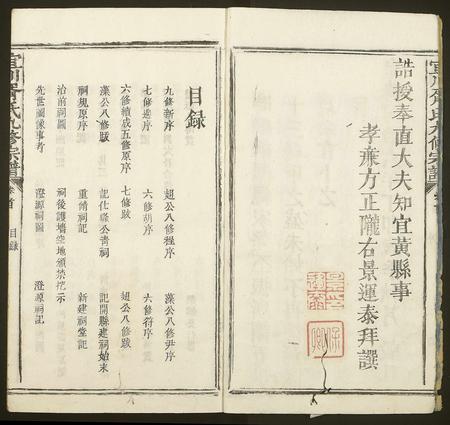 誥授奉直大夫知宜黃縣事
孝亷方正隴右景運泰拜譔
目録
九修新序
趙公八修程序
藻公八修尹序
七修邊序
六修胡序
六修符序
六修續成五修原序
七修跋
趙公八修跋
藻公八修跋
記仕隆公青祠
記開縣建祠始末
祠規原序
重脩祠記
新建祠堂記
治前祠圖
祠後護墻空地頒禁挖示
先世圖像事考
澄源祠圖
澄源祠記
氏九修宗譜
卷首
目録